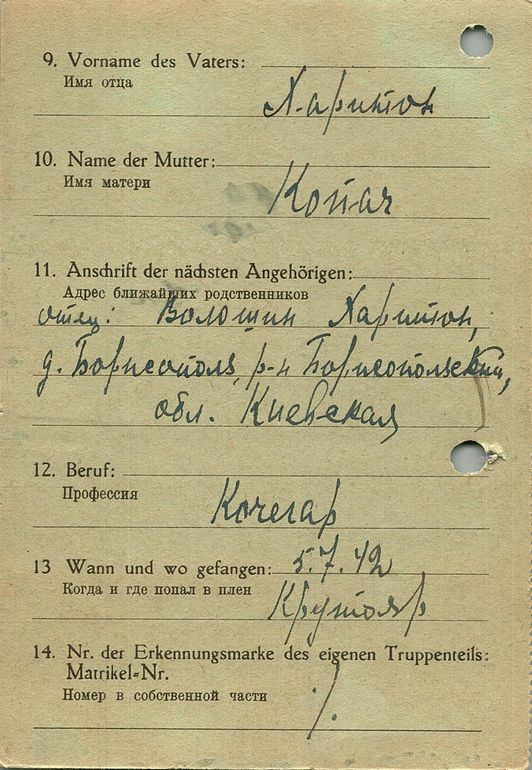 9. Vorname des Vaters:
Имя отца
Харитон
10. Name der Mutter:
Имя матери
Копач
11. Anschrift der nächsten Angehörigen:
Адрес ближайших родственников
отец: Волошин Харитон,
д. Борисополь, р-н Борисопольский,
обл. Киевская
12. Beruf:
Профессия
Кочегар
13 Wann und wo gefangen: 5.7.42
Когда и где попал в плен
Крутояр
14. Nr. der Erkennungsmarke des eigenen Truppenteils:
Matrikel-Nr.
Номер в собственной части